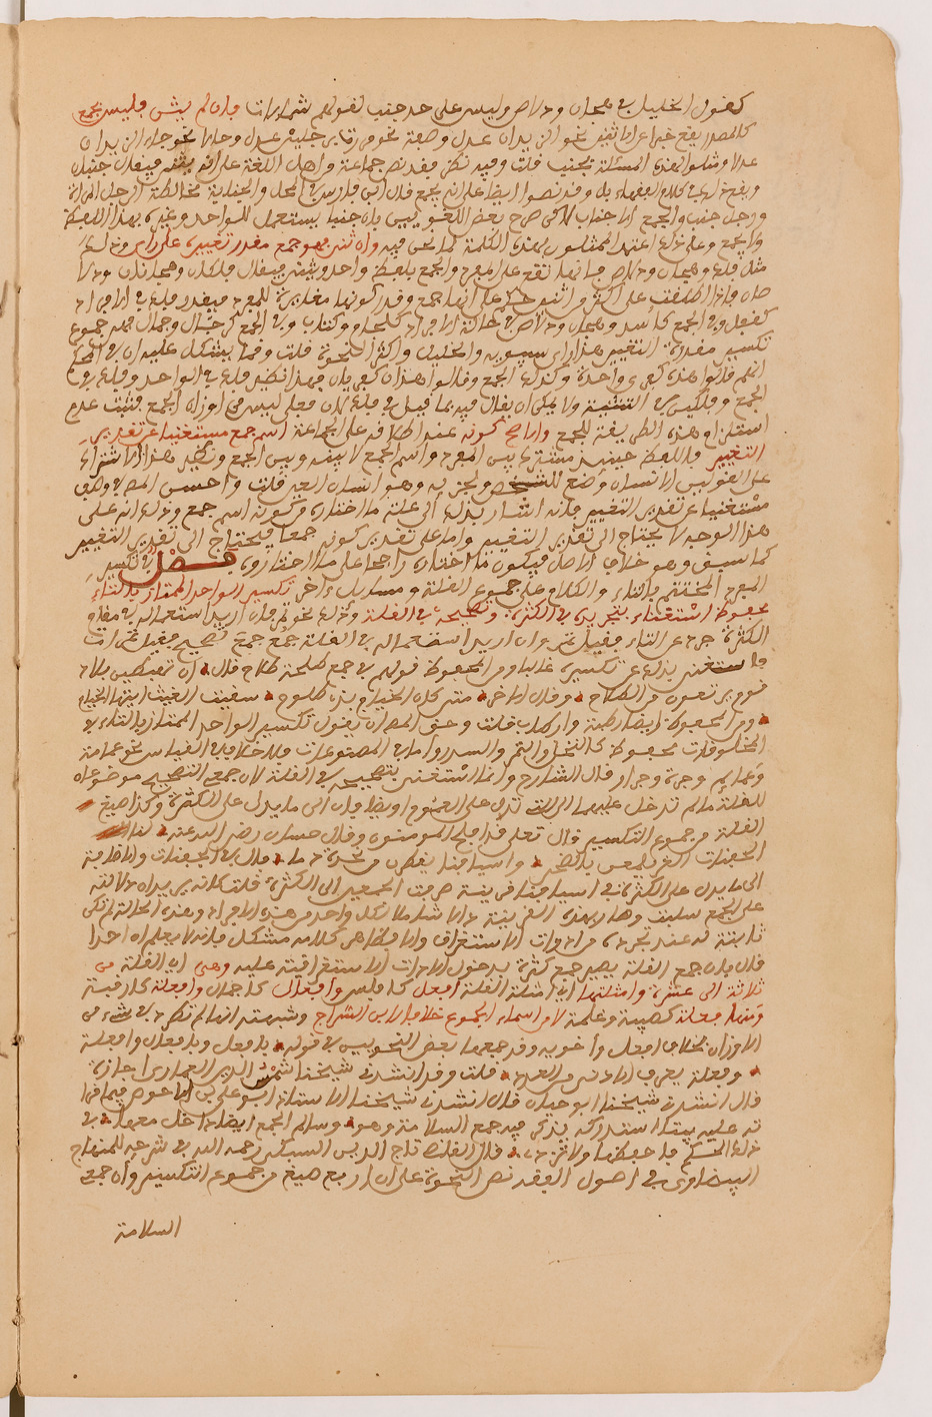 كقول الخليل في هجان ودلاص وليس على حد جنب لقولهم شمالات فإن لم يثن فليس بجمع
كالمصدر يقع خبرا عن الاثنين نحو الزيدان عدل وصفة نحو مررت برجلين عدل وحالا نحو جاء الزيدان
عدلا ومثلوا لهذه المسئلة بجنب قلت وفيه نظر فقد نص جماعة من أهل اللغة على أنه يثنى فيقال جنبان
ويقع ذلك في كلام الفقهاء بل وقد نصوا ايضا على انه يجمع قال ابن فارس في المجمل والجنابة مخالطة الرجل المراة
ورجل جنب والجمع اجناب لاكن صرح بعض اللغويين بان جنبا يستعمل للواحد وغيره بهذا اللفظ
ولا يجمع وعلى ذلك اعتمد الممثلون بهذه الكلمة لما نحن فيه وان ثني فهو جمع مقدر تغييره على راي وذلك
مثل فلك وهجان ودلاص فانها تقع على المفرد والجمع بلفظ واحد ويثنى فيقال فلكان وهجانان ودلا
صان فإذا اطلقت على اكثر من اثنين حكم على انها جمع وقدر كونها مغايرة للمفرد فيقدر فلك في الافراد
كقفل وفي الجمع كأسد وهجان ودلاص في حالة الافراد كلحاف وكتاب وفي الجمع كرجال وجمال فهو جموع
تكسير مقدرة التغيير هذا راي سيبويه والخليل واكثر النحوة قلت وقد يشكل عليه ان في المحكم
انهم قالوا هذه كفرى واحدة وكذلك الجمع وقالوا هذان كفريان فهذا نظير فلك في الواحد وفلك في
الجمع وفلكين في التثنية ولا يمكن ان يقال فيه بما قيل في فلك لان فعلى ليس من اوزان الجمع فثبت عدم
استلزام هذه الطريقة للجمع والاصح كونه عند اطلاقه على الجماعة اسم جمع مستغنيا عن تقدير
التغيير فاللفظ حينئذ مشترك بين المفرد واسم الجمع لا بينه وبين الجمع ونظير هذا الاشتراك
على القولين الانسان وضع للشخص ولجزئه وهو انسان العين قلت واحسن المصنف في قوله
مستغنيا عن تقدير التغيير فانه اشار بذلك الى علة ما اختاره من كونه اسم جمع وذلك انه على
هذا الوجه لا يحتاج الى تقدير التغيير واما على تقدير كونه جمعا فيحتاج الى تقدير التغيير
كما سبق وهو خلاف الاصل فيكون ما اختاره راجحا على ما اختاروه فصل في تكسير
المفرد المختتم بالتاء والكلام على جموع القلة ومسايل اخر تكسير الواحد الممتاز بالتاء
محفوظ استغناء بتجريده في الكثرة وتصحيحه في القلة وذلك نحو تمرة فان اريد استعماله في مقام
الكثرة جرد عن التاء فقيل تمر وان اريد استعماله في القلة جمع جمع تصحيح فقيل تمرات
فاستغني بذلك عن تكسيره غالبا ومن المحفوظ قولهم في جمع طلحة طلاح قال ان تهبطين بلاد
قوم يرتعون من الطلاح وقال الاخر متى كان الخيام بذي طلوح سقيت الغيث ايتها الخيام
ومن المحفوظ ايضا رطبة وارطاب قلت وحق المصنف ان يقول تكسير الواحد الممتاز بالتاء في
المخلوقات محفوظ كالنخل والتمر والسدر واما في المصنوعات فلا خلاف في القياس نحو عمامة
وعمايم وجرة وجرار قال الشارح وانما استغني بتصحيحه في القلة لان جمعي التصحيح موضوعان
للقلة ما لم تدخل عليهما ال التي تدل على العموم او يضافان الى ما يدل على الكثرة وكذا صيغ
القلة من جموع التكسير قال تعلى قد افلح المومنون وقال حسان رضي الله عنه لنا
الجفنات الغر يلمعن بالضحى واسيافنا يقطرن من نجدة دما فال في الجفنات والاضافة
الى ما يدل على الكثرة في اسيافنا قرينة صرفت الجمعين الى الكثرة قلت كانه يريد ان دلالته
على الجمع سابقة وهاد لهذه القرينة دالا شاملا لكل واحد من هذه الافراد وهذه الحالة لم تكن
ثابتة له عند تجرده من ادوات الاستغراق والا فظاهر كلامه مشكل فانه لا يعلم ان احدا
قال بان جمع القلة يصير جمع كثرة بدخول الادوات الاستغراقية عليه وهي اي القلة من
ثلاثة الى عشرة وامثلتها اي امثلة القلة افعل كافلس وافعال كاجمال وافعلة كارغفة
ومنها فعلة كصبية وغلمة لا من اسماء الجموع خلافا لابن السراج وشبهته انها لم تطرد في شيء من
الاوزان بخلاف افعل واخويه وقد جمعها بعض النحويين في قوله بافعل وبافعال وافعلة
وفعلة يعرف الادنى من العدد قلت وقد انشدني شيخنا شمس الدين الغماري اجازة
قال انشدني شيخنا ابو حيان قال انشدني شيخنا الاستاذ ابو علي بن ابي الاحوص فيما قرا
ته عليه بيتا استدراكه يذكر فيه جمع السلامة وهو وسالم الجمع ايضا داخل معها في
ذلك الحكم فاحفظها ولا تزد قال القاضي تاج الدين السبكي رحمه الله في شرحه للمنهاج
البيضاوي في اصول الفقه نص النحوة على ان اربع صيغ من جموع التكسير وان جمعي
السلامة